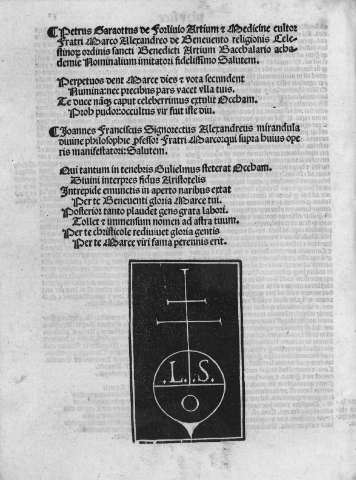 Petrus Garaottus de Forliuio Artium & Medicine cultor
Fratri Marco Alexandreo de Beneuento religionis Cele-
stinorum ordinis sancti Benedicti Artium Bacchalario acha-
demie Nominalium imitatori fidelissimo Salutem.
Perpetuos dent Marce dies & vota secundent
Numina: nec precibus pars vacet vlla tuis.
Te duce nāq; caput celeberrimus extulit Occham.
Proh pudor: occultus vir fuit iste diu.
Ioannes Franciscus Signorectus Alexandreus mirandula
diuine philosophie professor Fratri Marco: qui supra huius ope
ris manifestatori: Salutem.
Qui tantum in tenebris Gulielmus steterat Occham.
Diuini interpres fidus Aristotelis
Intrepide emunctis in aperto naribus extat
Per te Beneuenti gloria Marce tui.
Posterior tanto plaudet gens grata labori.
Tollet & immensum nomen ad astra tuum.
Per te christicole rediuiuet gloria gentis
Per te Marce viri fama perennis erit.
.L. .S.